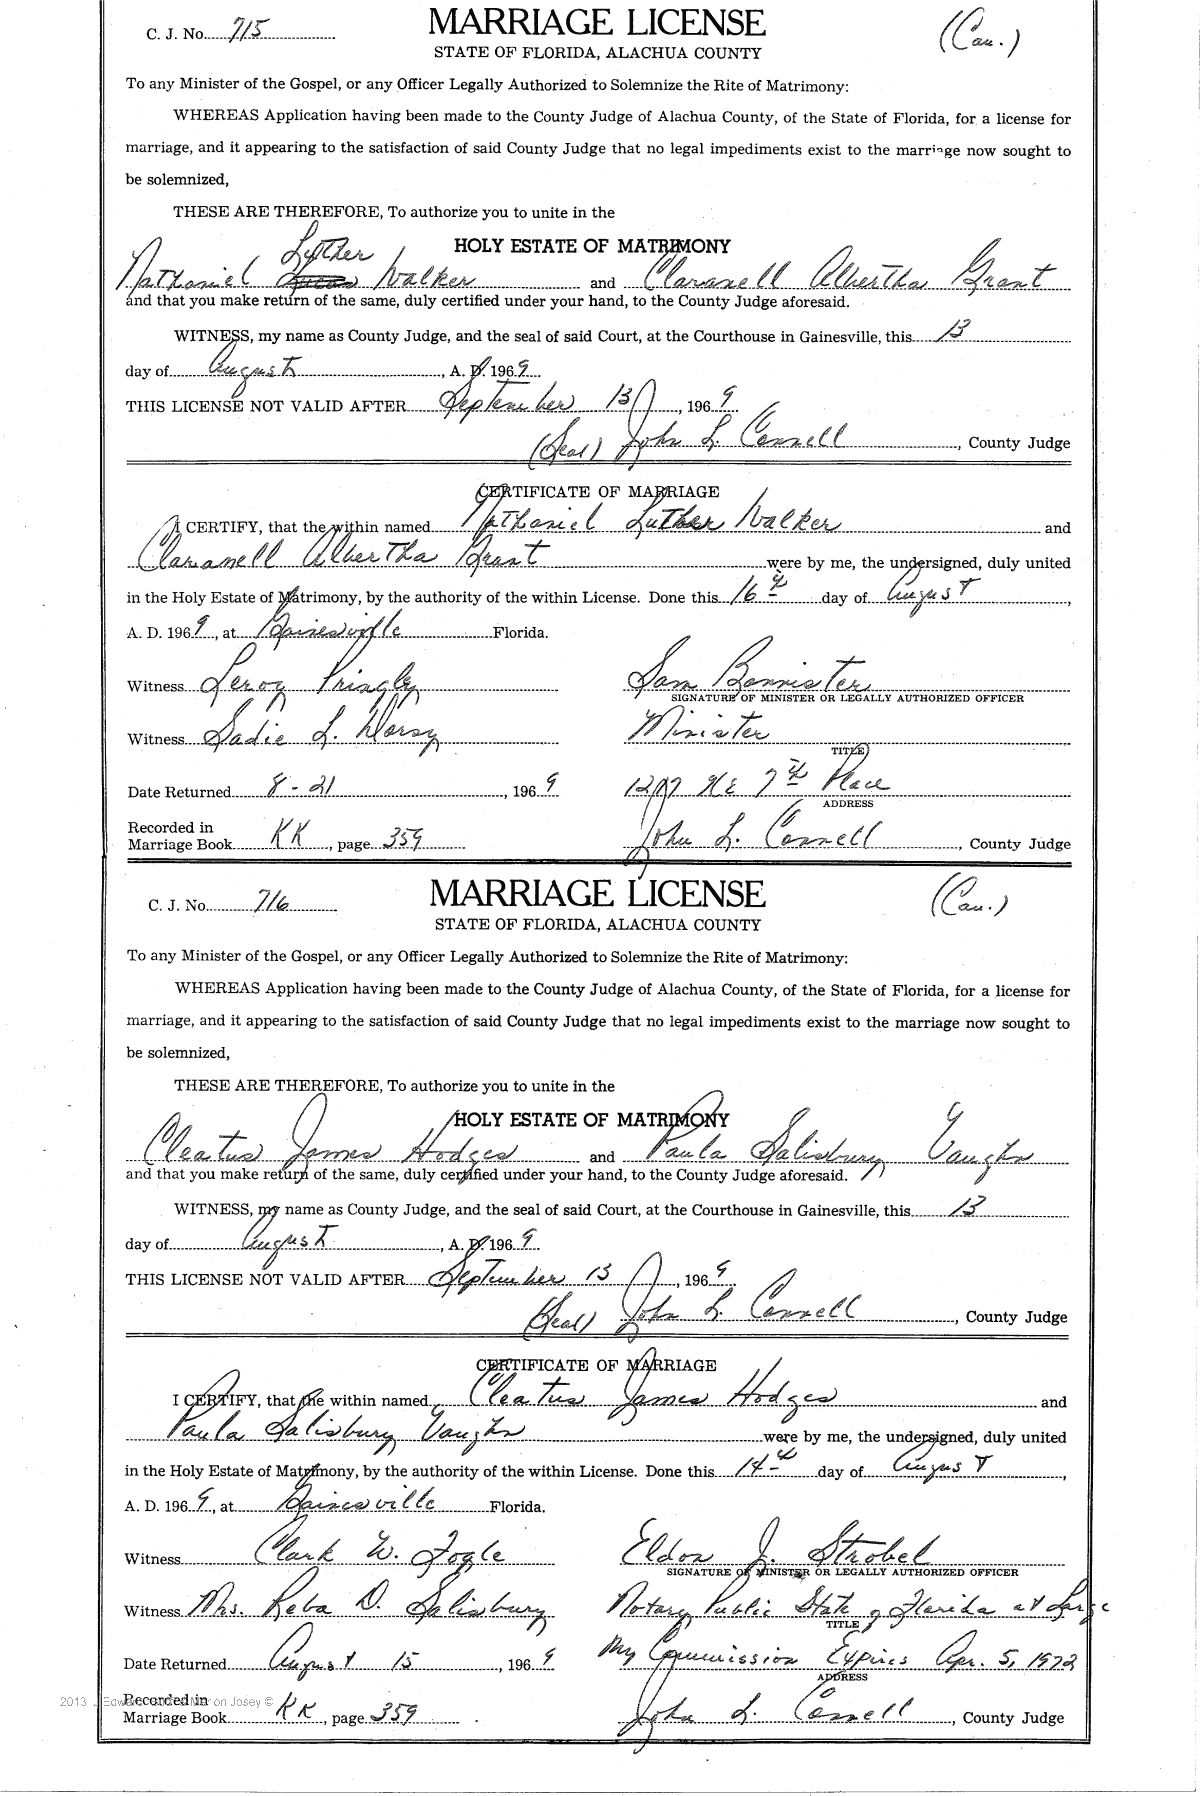 C. J. No. 715
MARRIAGE LICENSE
(Cau.)
STATE OF FLORIDA, ALACHUA COUNTY
To any Minister of the Gospel, or any Officer Legally Authorized to Solemnize the Rite of Matrimony:
WHEREAS Application having been made to the County Judge of Alachua County, of the State of Florida, for a license for
marriage, and it appearing to the satisfaction of said County Judge that no legal impediments exist to the marriage now sought to
be solemnized,
THESE ARE THEREFORE, To authorize you to unite in the
HOLY ESTATE OF MATRIMONY
Nathaniel Luther Walker and Claranell Albertha Grant
and that you make return of the same, duly certified under your hand, to the County Judge aforesaid.
WITNESS, my name as County Judge, and the seal of said Court, at the Courthouse in Gainesville, this 13
day of August, A. D. 1969
THIS LICENSE NOT VALID AFTER September 13, 1969
(Seal) John L. Connell, County Judge
CERTIFICATE OF MARRIAGE
I CERTIFY, that the within named Nathaniel Luther Walker and
Claranell Albertha Grant were by me, the undersigned, duly united
in the Holy Estate of Matrimony, by the authority of the within License. Done this 16th day of August,
A. D. 1969, at Gainesville Florida.
Witness Leroy Pringly
Sam Bannister
SIGNATURE OF MINISTER OR LEGALLY AUTHORIZED OFFICER
Witness Sadie L. Dorsy
Minister
TITLE
Date Returned 8-21, 1969
1217 NE 7th Place
ADDRESS
Recorded in
Marriage Book KK, page 359
John L. Connell, County Judge
C. J. No. 716
MARRIAGE LICENSE
(Cau.)
STATE OF FLORIDA, ALACHUA COUNTY
To any Minister of the Gospel, or any Officer Legally Authorized to Solemnize the Rite of Matrimony:
WHEREAS Application having been made to the County Judge of Alachua County, of the State of Florida, for a license for
marriage, and it appearing to the satisfaction of said County Judge that no legal impediments exist to the marriage now sought to
be solemnized,
THESE ARE THEREFORE, To authorize you to unite in the
HOLY ESTATE OF MATRIMONY
Cleatus James Hodges and Paula Salisbury Vaughn
and that you make return of the same, duly certified under your hand, to the County Judge aforesaid.
WITNESS, my name as County Judge, and the seal of said Court, at the Courthouse in Gainesville, this 13
day of August, A. D. 1969
THIS LICENSE NOT VALID AFTER September 13, 1969
(Seal) John L. Connell, County Judge
CERTIFICATE OF MARRIAGE
I CERTIFY, that the within named Cleatus James Hodges and
Paula Salisbury Vaughn were by me, the undersigned, duly united
in the Holy Estate of Matrimony, by the authority of the within License. Done this 14th day of August,
A. D. 1969, at Gainesville Florida.
Witness Clark W. Fogle
Eldon J. Strobel
SIGNATURE OF MINISTER OR LEGALLY AUTHORIZED OFFICER
Witness Mrs. Reba D. Salisbury
Notary Public State of Florida at Large
TITLE
Date Returned August 15, 1969
My Commission Expires Apr. 5, 1972
ADDRESS
Recorded in
Marriage Book KK, page 359
John L. Connell, County Judge
2013 Josey ©